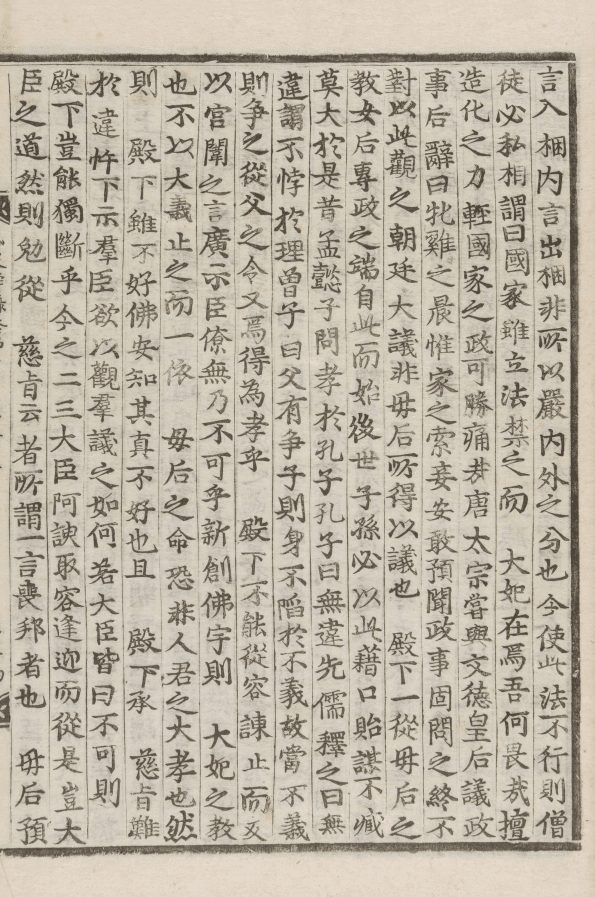 言入梱内言出梱非所以嚴内外之分也今使此法不行則僧
徒必私相謂曰國家雖立法禁之而 大妃在焉吾何畏哉擅
造化之力輕國家之政可勝痛㢤唐太宗嘗與文德皇后議政
事后辭曰牝雞之晨惟家之索妾安敢預聞政事固問之終不
對以此觀之朝廷大議非母后所得以議也 殿下一從母后之
教女后專政之端自此而始後世子孫必以此藉口貽謀不臧
莫大於是昔孟懿子問孝於孔子孔子曰無違先儒釋之曰無
違謂不悖於理曾子曰父有爭子則身不陷於不義故當不義
則爭之從父之令又焉得為孝乎 殿下不能從容諫止而又
以宮闈之言廣示臣僚無乃不可乎新創佛宇則 大妃之教
也不以大義止之而一依 母后之命恐非人君之大孝也然
則 殿下雖不好佛安知其真不好也且 殿下承 慈旨難
於違忤下示羣臣欲以觀羣議之如何若大臣皆曰不可則
殿下豈能獨斷乎今之二三大臣阿諛取容逢迎而從是豈大
臣之道然則勉從 慈旨云者所謂一言喪邦者也 母后預